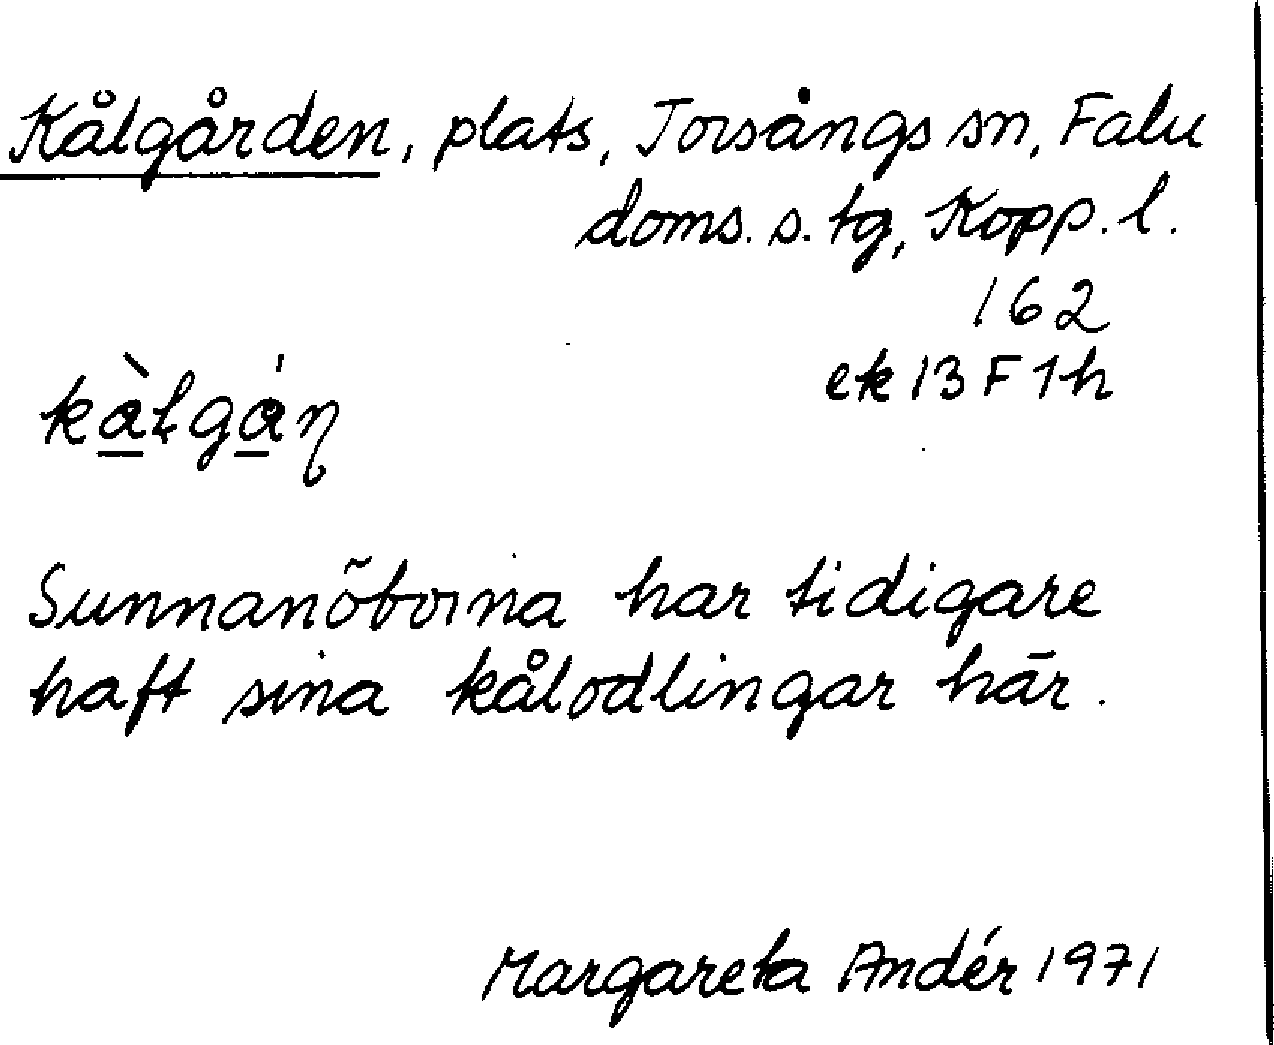 Kålgården, plats, Torsångs sn, Falu
doms. s. tg, Kopp. l.
162
ek 13 F 1 h
Sunnanöborna har tidigare
haft sina kålodlingar här.
Margareta Andér 1971